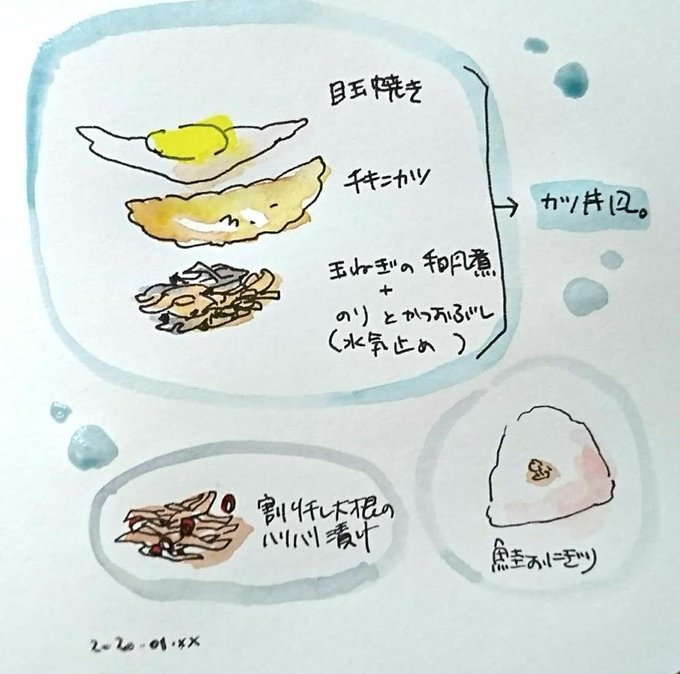 目玉焼き
チキンカツ
玉ねぎの和風煮
+
のりとかつおぶし
(水気止め)
カツ丼風。
割り干し大根の
ハリハリ漬け
鮭おにぎり
2020.01.xx